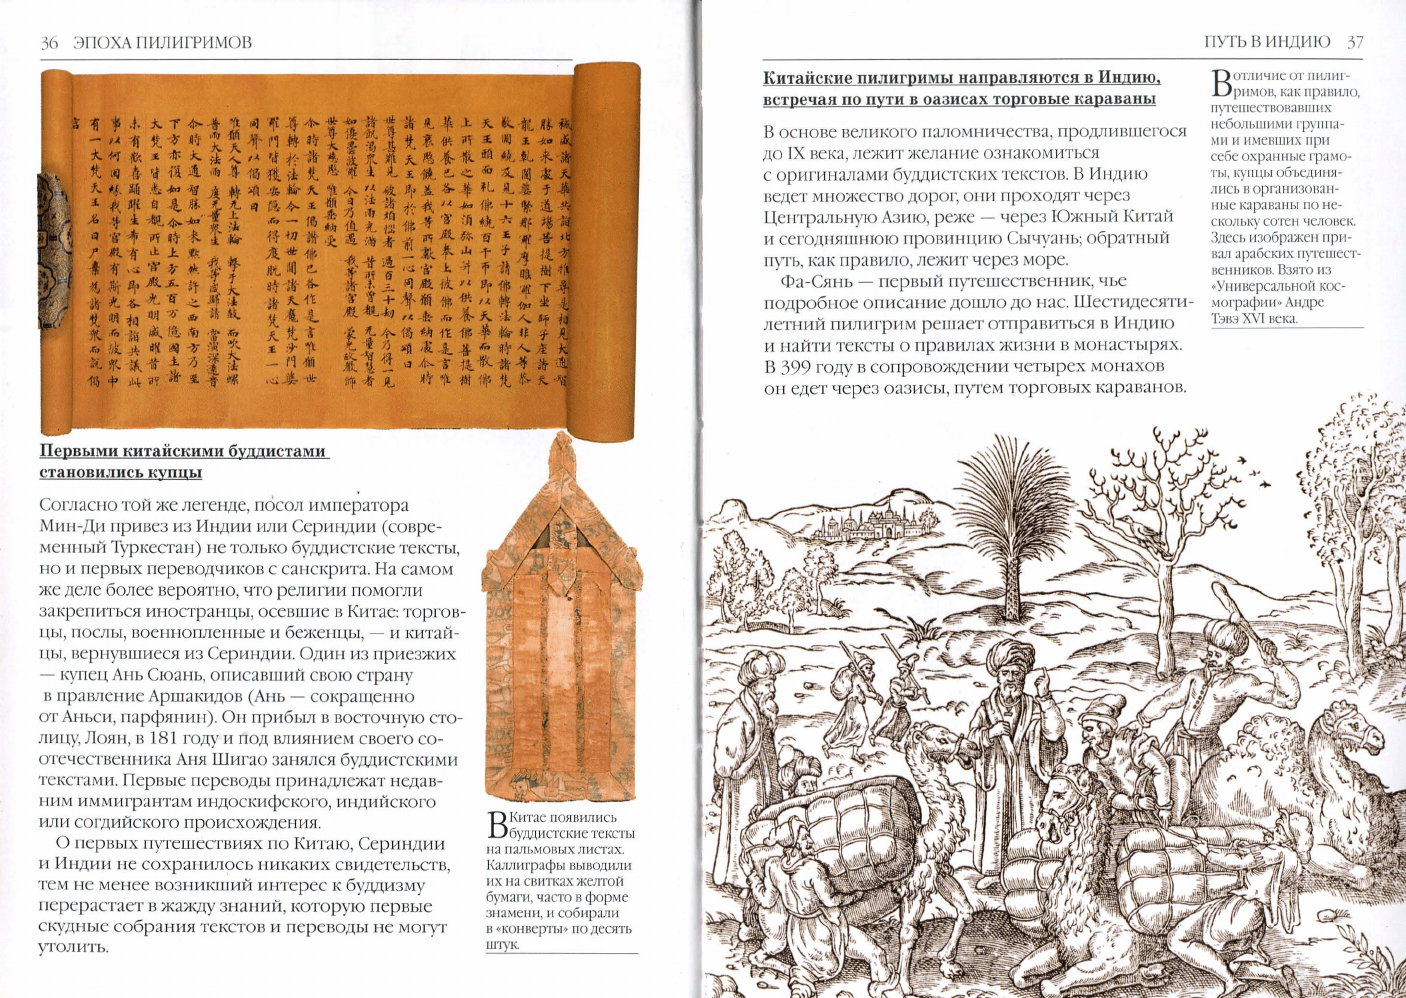 36 ЭПОХА ПИЛИГРИМОВ
裓盛諸天華共詣北方推尋是相見大通智
勝如來處于道場菩提樹下坐師子座諸天
龍王乾闥婆緊那羅摩睺羅伽人非人等恭
敬圍繞及見十六王子請佛轉法輪時諸梵
天王頭面礼佛繞百千帀即以天華而散佛
上所散之華如須弥山并以供養佛菩提樹
華供養已各以宮殿奉上彼佛而作是言唯
見哀愍饒益我等所獻宮殿願垂納處尒時
諸梵天王即於佛前一心同聲以偈頌曰
世尊甚難見 破諸煩惱者 過百三十劫 今乃得一見
諸飢渴眾生 以法雨充滿 昔所未曾覩 无量智慧者
如優曇波羅 今日乃值遇 我等諸宮殿 蒙光故嚴飾
世尊大慈愍 唯願垂納受
尒時諸梵天王偈讚佛已各作是言唯願世
尊轉於法輪令一切世間諸天魔梵沙門婆
羅門皆獲安隱而得度脫時諸梵天王一心
同聲以偈頌曰
唯願天人尊 轉无上法輪 擊于大法鼓 而吹大法螺
普雨大法雨 度无量眾生 我等咸歸請 當演深遠音
尒時大通智勝如來默然許之西南方乃至
下方亦復如是尒時上方五百万億國土諸
大梵王皆悉自覩所止宮殿光明威曜昔所
未有歡喜踊躍生希有心即各相詣共議此
事以何因緣我等宮殿有斯光明而彼眾中
有一大梵天王名曰尸棄為諸梵眾而說偈
言
Первыми китайскими буддистами
становились купцы
Согласно той же легенде, посол императора
Мин-Ди привез из Индии или Сериндии (совре-
менный Туркестан) не только буддистские тексты,
но и первых переводчиков с санскрита. На самом
же деле более вероятно, что религии помогли
закрепиться иностранцы, осевшие в Китае: торгов-
цы, послы, военнопленные и беженцы, — и китай-
цы, вернувшиеся из Сериндии. Один из приезжих
— купец Ань Сюань, описавший свою страну
в правление Аршакидов (Ань — сокращенно
от Аньси, парфянин). Он прибыл в восточную сто-
лицу, Лоян, в 181 году и под влиянием своего со-
отечественника Аня Шигао занялся буддистскими
текстами. Первые переводы принадлежат недав-
ним иммигрантам индоскифского, индийского
или согдийского происхождения.
О первых путешествиях по Китаю, Сериндии
и Индии не сохранилось никаких свидетельств,
тем не менее возникший интерес к буддизму
перерастает в жажду знаний, которую первые
скудные собрания текстов и переводы не могут
утолить.
В Китае появились
буддистские тексты
на пальмовых листах.
Каллиграфы выводили
их на свитках желтой
бумаги, часто в форме
знамени, и собирали
в «конверты» по десять
штук.
ПУТЬ В ИНДИЮ 37
Китайские пилигримы направляются в Индию,
встречая по пути в оазисах торговые караваны
В основе великого паломничества, продлившегося
до IX века, лежит желание ознакомиться
с оригиналами буддистских текстов. В Индию
ведет множество дорог, они проходят через
Центральную Азию, реже — через Южный Китай
и сегодняшнюю провинцию Сычуань; обратный
путь, как правило, лежит через море.
Фа-Сянь — первый путешественник, чье
подробное описание дошло до нас. Шестидесяти-
летний пилигрим решает отправиться в Индию
и найти тексты о правилах жизни в монастырях.
В 399 году в сопровождении четырех монахов
он едет через оазисы, путем торговых караванов.
В отличие от пилиг-
римов, как правило,
путешествовавших
небольшими группа-
ми и имевших при
себе охранные грамо-
ты, купцы объединя-
лись в организован-
ные караваны по не-
скольку сотен человек.
Здесь изображен при-
вал арабских путешест-
венников. Взято из
«Универсальной кос-
мографии» Андре
Тэвэ XVI века.